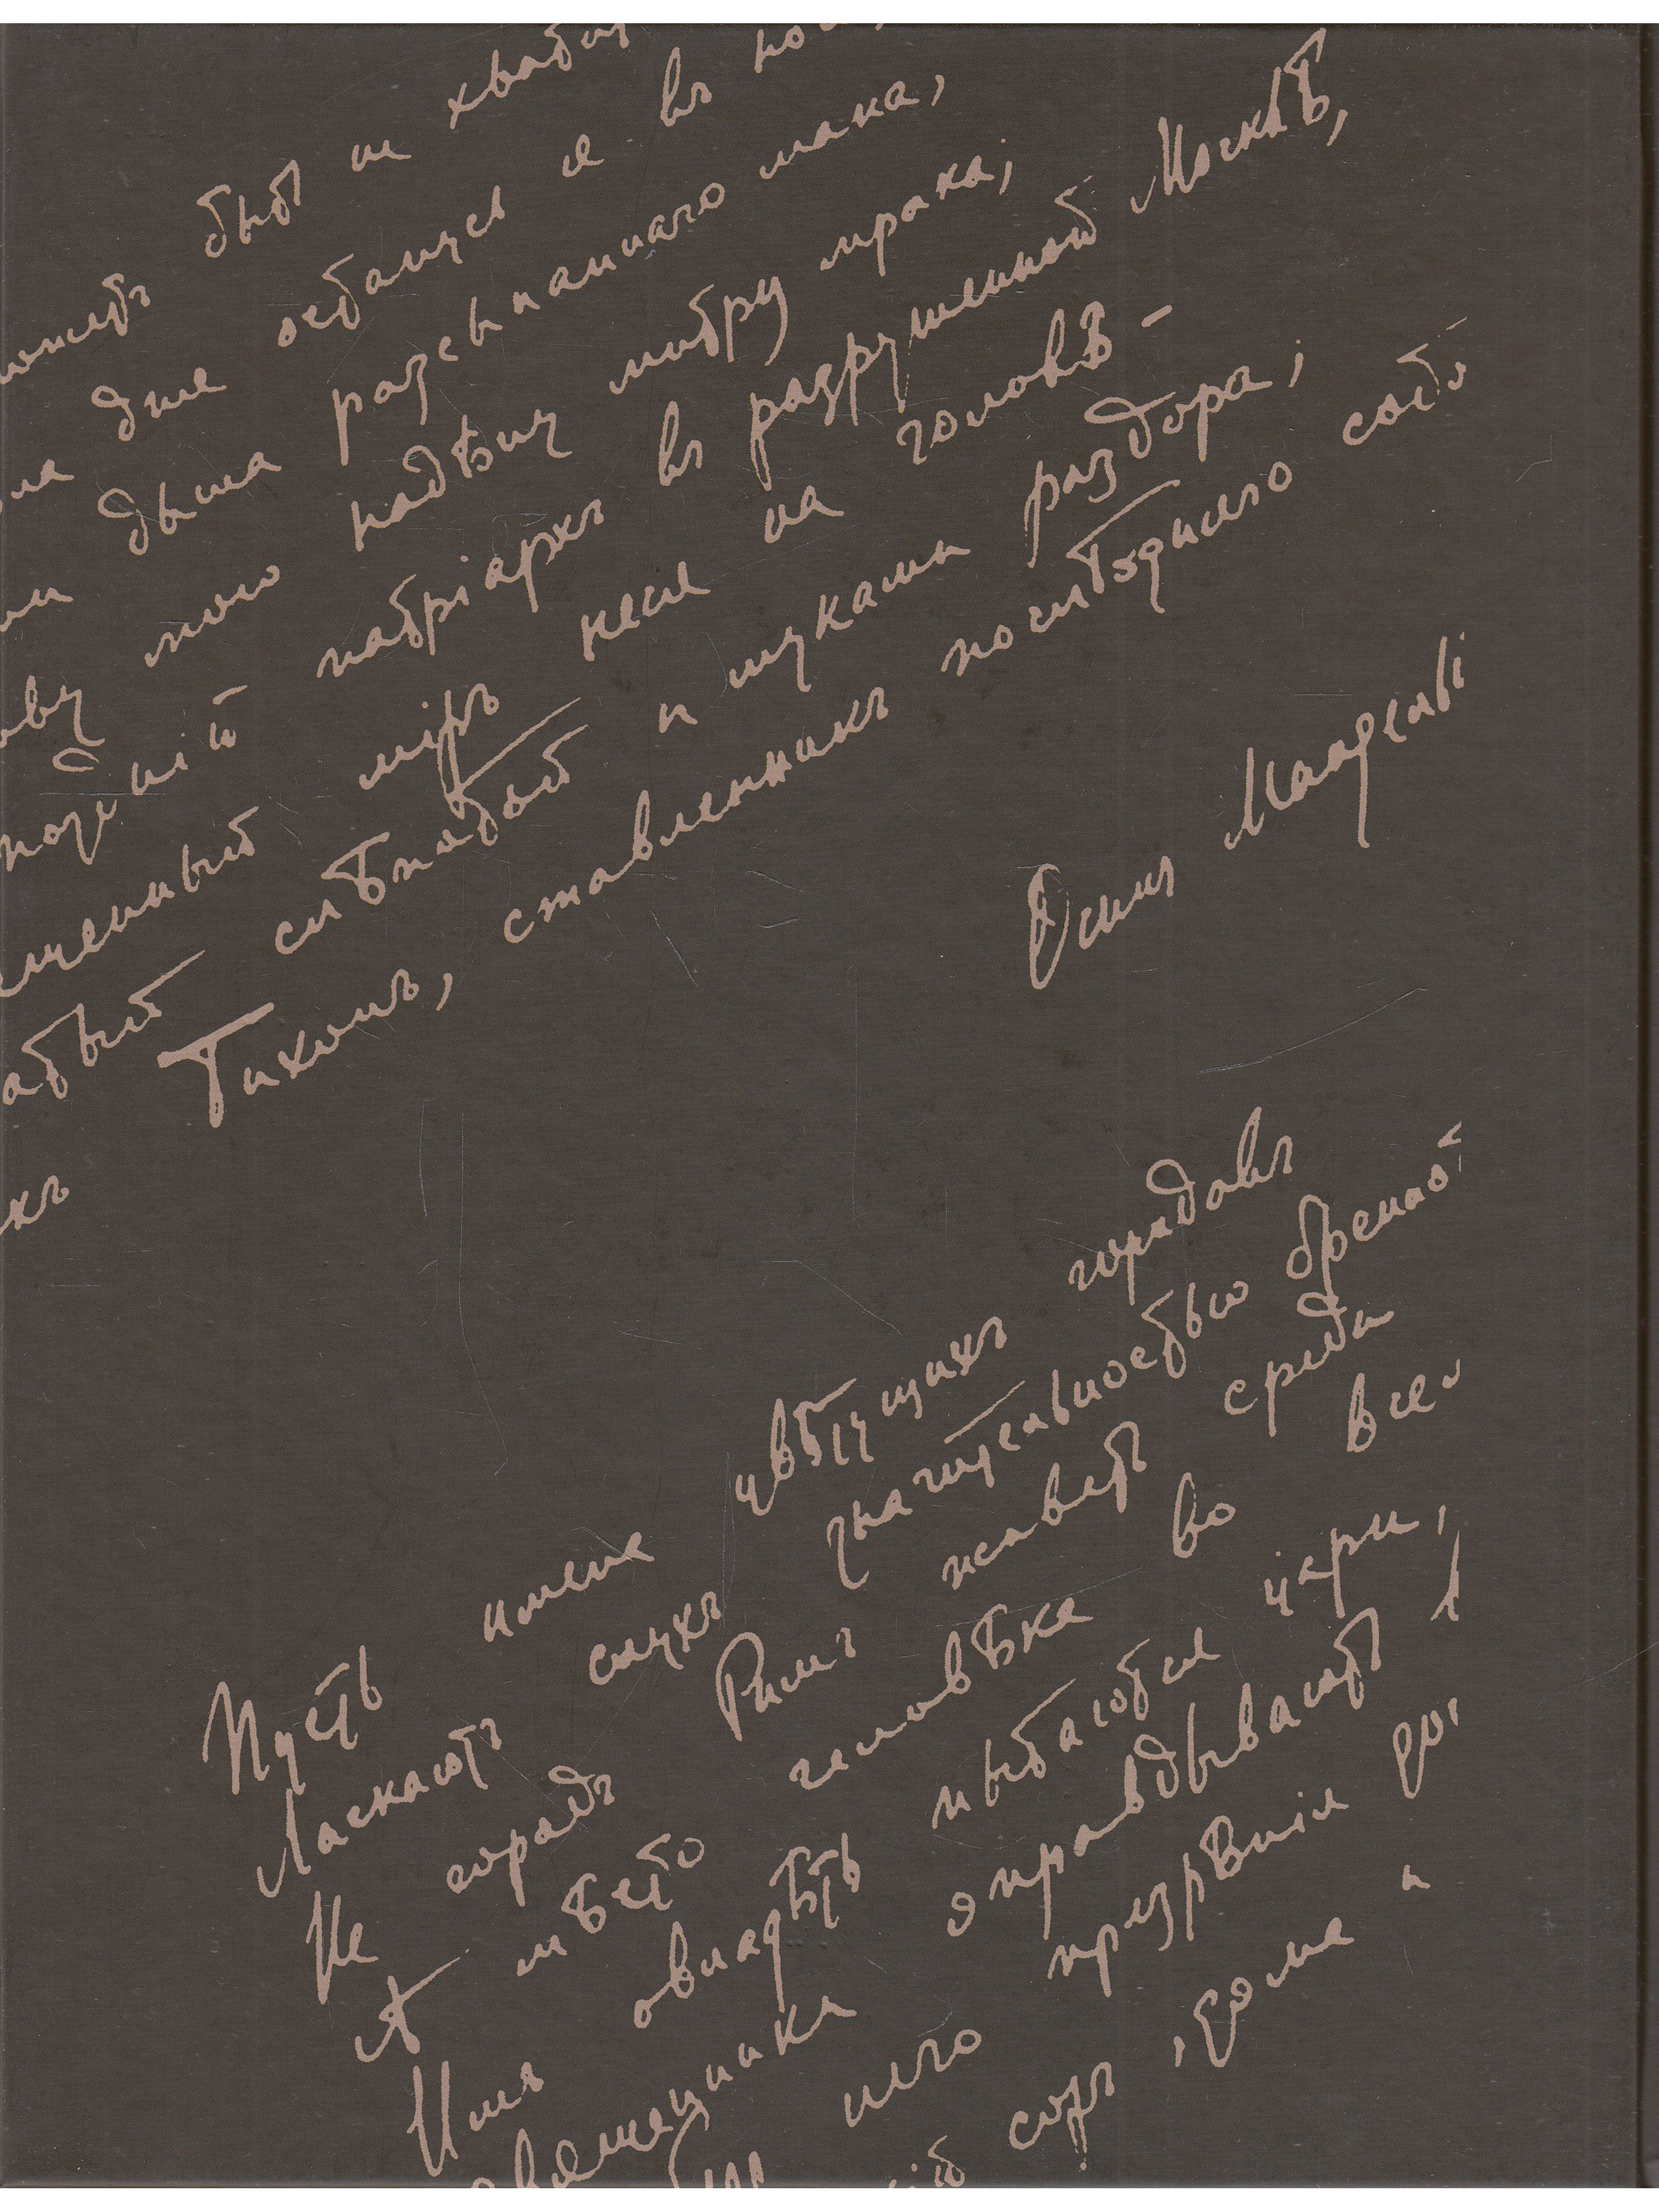 ожетъ быт не хватит
ла дня останусь я въ но
ми дыша разсыпаннаго мака,
ову мою надѣну митру мрака;
поздній патріархъ въ разрушенной Москвѣ,
ященный міръ неся на головѣ –
атый слѣпотой и муками раздора;
къ Тихонъ, ставленникъ послѣдняго собо
Осипъ Мандельш
Пусть имена цвѣтущихъ городовъ
Ласкаютъ слухъ значительностью бренной
Не городъ Римъ живетъ среди
А мѣсто человѣка во всел
Имъ овладѣть пытаются цари,
священники оправдываютъ
него презрѣнія дос
сор, дома и